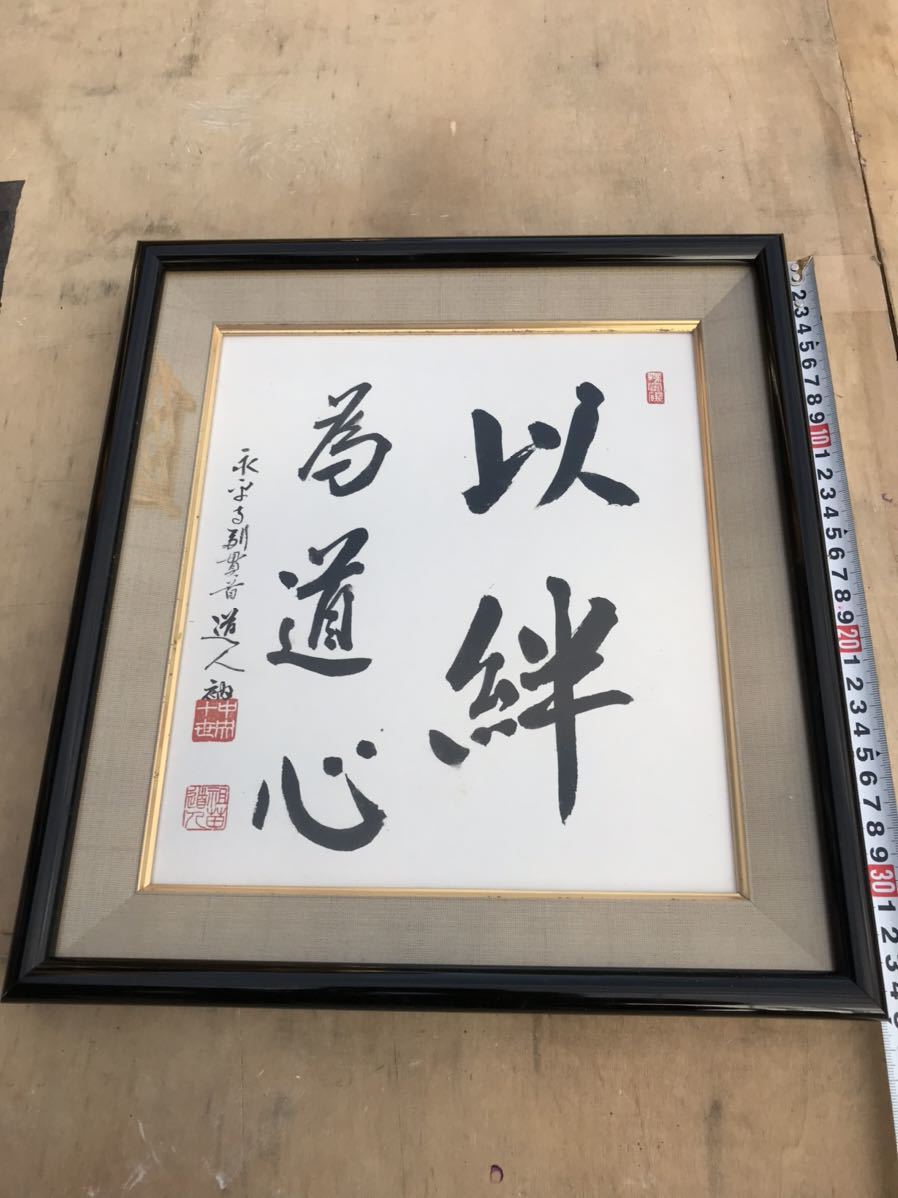 以絆
為道心
永平寺副貫首 道人 衲
2 3 4 5 6 7 8 9 10 1 2 3 4 5 6 7 8 9 20 1 2 3 4 5 6 7 8 9 30 1 2 3 4 5